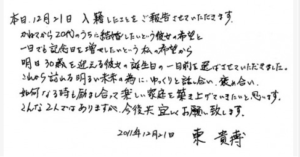 本日、12月21日 入籍したことをご報告させていただきます。
かねてから20代のうちに結婚したいという彼女の希望と
一日でも記念日を増やしたいという私の希望から
明日30歳を迎える彼女の誕生日の一日前を選ばせていただきました。
これから訪れる明るい未来の為に、ゆっくりと話し合い、褒め合い、
如何なる時も励まし合って楽しい家庭を築き上げていきたいと思います。
こんな2人ではありますが、今後共宜しくお願い致します。
2011年12月21日 東 貴博